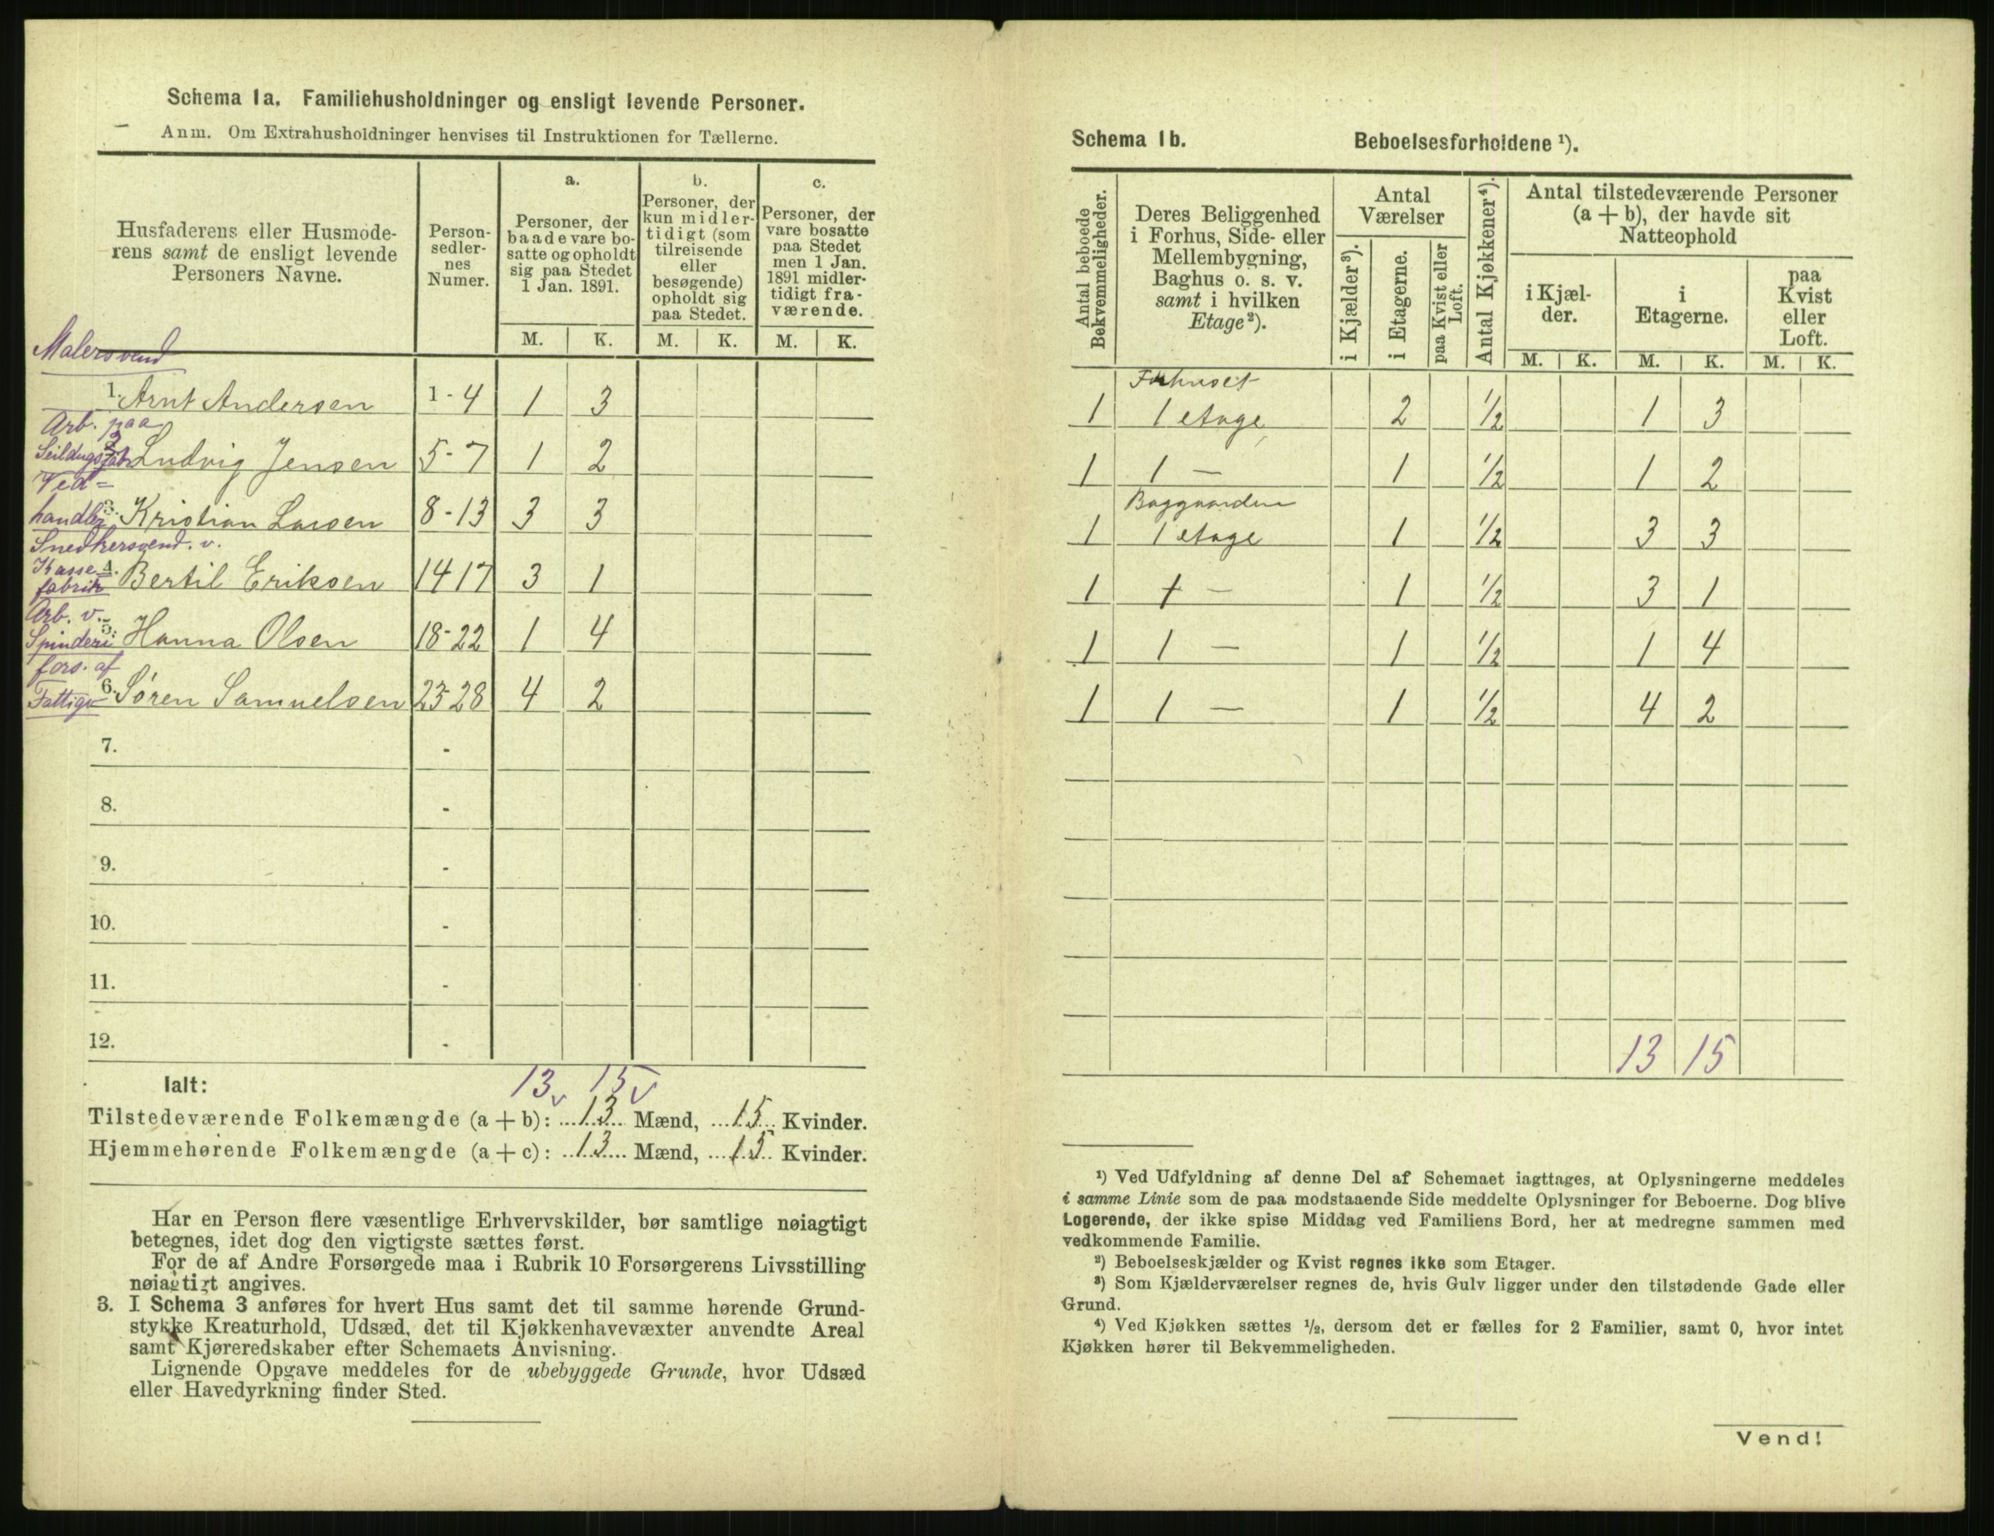 Schema 1a. Familiehusholdninger og ensligt levende Personer.
Anm. Om Extrahusholdninger henvises til Instruktionen for Tællerne.
Husfaderens eller Husmoderens samt de ensligt levende Personers Navne.
Personsedlernes Numer.
a.
Personer, der baade vare bosatte og opholdt sig paa Stedet 1 Jan. 1891.
b.
Personer, der kun midlertidigt (som tilreisende eller besøgende) opholdt sig paa Stedet.
c.
Personer, der vare bosatte paa Stedet men 1 Jan. 1891 midlertidigt fraværende.
M. K. M. K. M. K.
Malersvend
1. Arnt Andersen 1-4 1 3
Arb. paa
Seildugsfabr. 2 Ludvig Jensen 5-7 1 2
Ved-
handler 3. Kristian Larsen 8-13 3 3
Snedkersvend. v.
Kasse 4. Bertil Eriksen 14 17 3 1
fabrik
Arb. v.
Spinderi 5. Hanna Olsen 18-22 1 4
fors. af
Fattigv 6. Søren Samuelsen 23-28 4 2
7. -
8. -
9. -
10. -
11. -
12. -
Ialt: 13 v 15 v
Tilstedeværende Folkemængde (a + b): 13 Mænd, 15 Kvinder.
Hjemmehørende Folkemængde (a + c): 13 Mænd, 15 Kvinder.
Har en Person flere væsentlige Erhvervskilder, bør samtlige nøiagtigt
betegnes, idet dog den vigtigste sættes først.
For de af Andre Forsørgede maa i Rubrik 10 Forsørgerens Livsstilling
nøiagtigt angives.
3. I Schema 3 anføres for hvert Hus samt det til samme hørende Grund-
stykke Kreaturhold, Udsæd, det til Kjøkkenhavevæxter anvendte Areal
samt Kjøreredskaber efter Schemaets Anvisning.
Lignende Opgave meddeles for de ubebyggede Grunde, hvor Udsæd
eller Havedyrkning finder Sted.
Schema 1b. Beboelsesforholdene ¹).
Antal beboede Bekvemmeligheder.
Deres Beliggenhed i Forhus, Side- eller Mellembygning, Baghus o. s. v. samt i hvilken Etage²).
Antal Værelser
i Kjælder³).
i Etagerne.
paa Kvist eller Loft.
Antal Kjøkkener⁴).
Antal tilstedeværende Personer (a + b), der havde sit Natteophold
i Kjælder.
i Etagerne.
paa Kvist eller Loft.
M. K. M. K. M. K.
Forhuset
1 1 etage 2 ½ 1 3
1 1 — 1 ½ 1 2
Baggaarden
1 1 etage 1 ½ 3 3
1 1 — 1 ½ 3 1
1 1 — 1 ½ 1 4
1 1 — 1 ½ 4 2
13 15
¹) Ved Udfyldning af denne Del af Schemaet iagttages, at Oplysningerne meddeles
i samme Linie som de paa modstaaende Side meddelte Oplysninger for Beboerne. Dog blive
Logerende, der ikke spise Middag ved Familiens Bord, her at medregne sammen med
vedkommende Familie.
²) Beboelseskjælder og Kvist regnes ikke som Etager.
³) Som Kjælderværelser regnes de, hvis Gulv ligger under den tilstødende Gade eller
Grund.
⁴) Ved Kjøkken sættes ½, dersom det er fælles for 2 Familier, samt 0, hvor intet
Kjøkken hører til Bekvemmeligheden.
Vend!